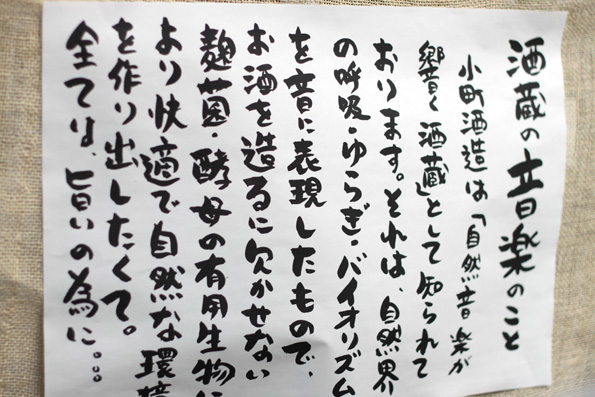 酒蔵の音楽のこと
小町酒造は「自然音楽が
響く酒蔵」として知られて
おります。それは、自然界
の呼吸・ゆらぎ・バイオリズム
を音に表現したもので、
お酒を造るに欠かせない
麹菌・酵母の有用生物に
より快適で自然な環境
を作り出したくて。
全ては、旨いの為に…。